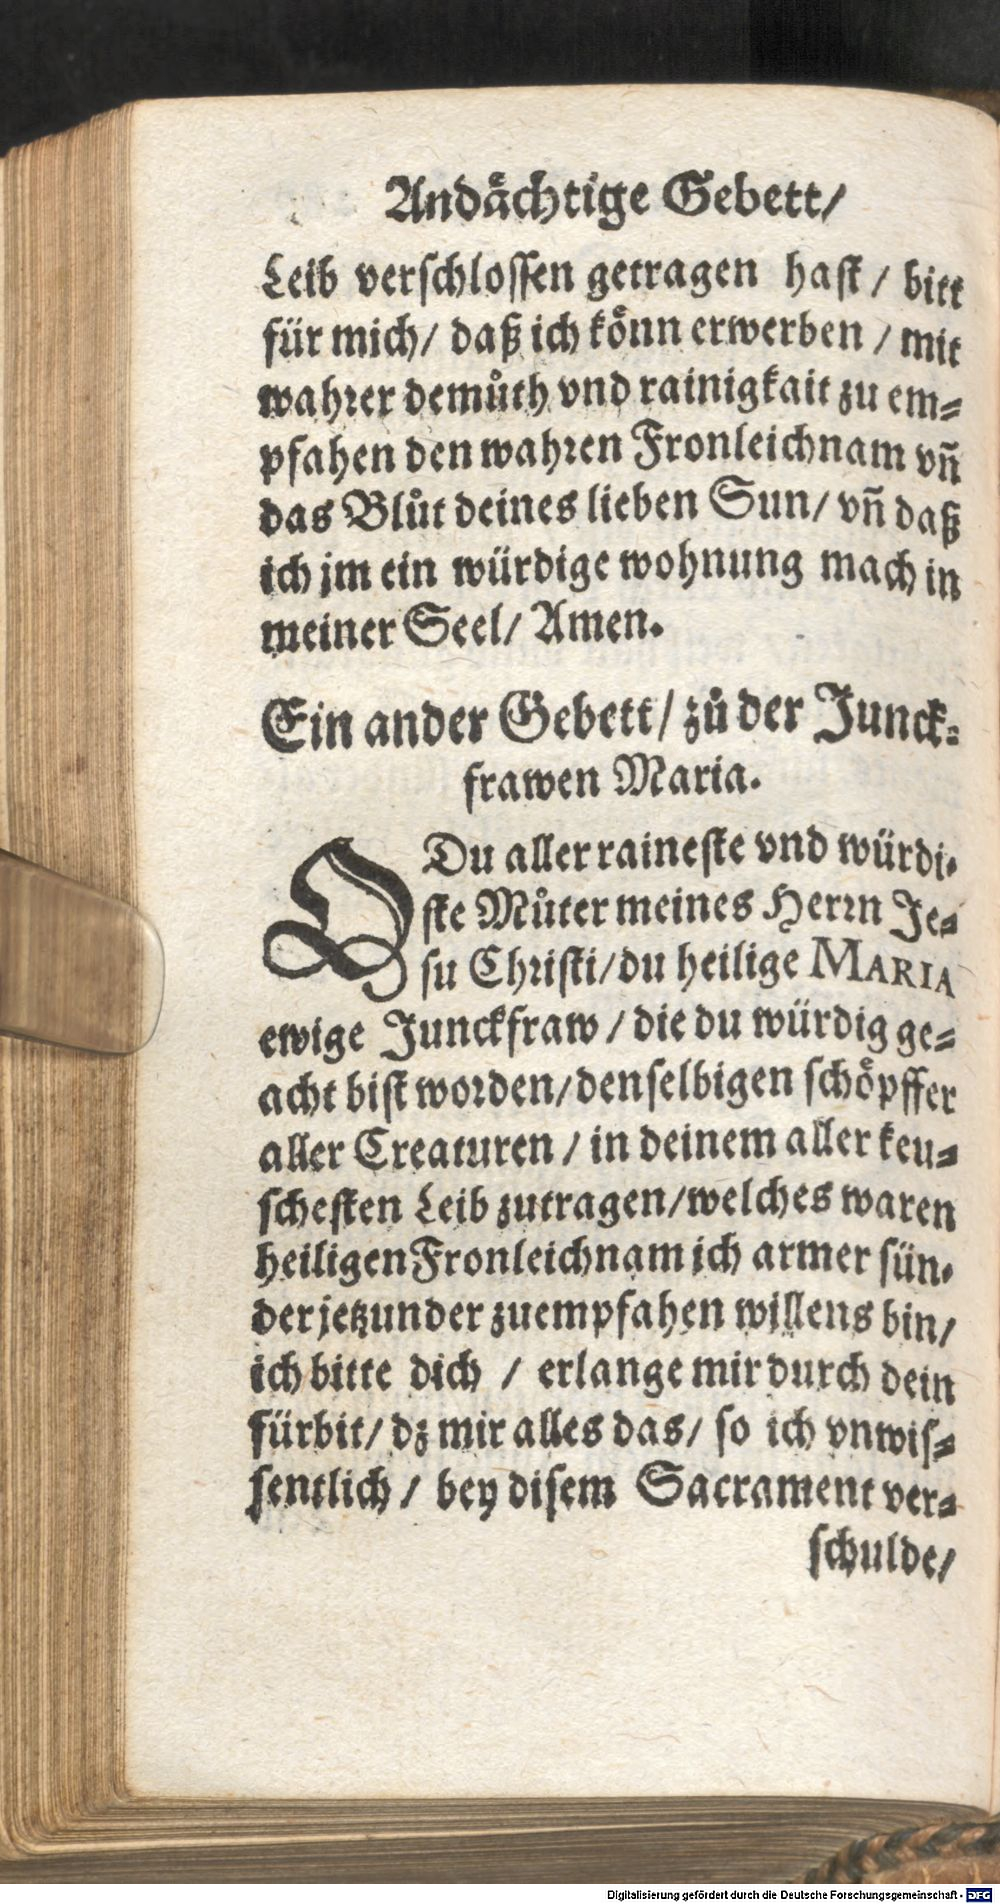 Andaͤchtige Gebett/
Leib verſchloſſen getragen haſt / bitt
für mich/ daß ich koͤnn erwerben / mit
wahrer demuͦth vnd rainigkait zu em⸗
pfahen den wahren Fronleichnam vñ
das Bluͦt deines lieben Sun/ vñ daß
ich jm ein würdige wohnung mach in
meiner Seel/ Amen.
Ein ander Gebett/ zuͦ der Junck⸗
frawen Maria.
O Du aller raineſte vnd würdi⸗
ſte Muͦter meines Herrn Je⸗
ſu Chriſti/ du heilige MARIA
ewige Junckfraw / die du würdig ge⸗
acht biſt worden/ denſelbigen ſchoͤpffer
aller Creaturen / in deinem aller keu⸗
ſcheſten Leib zutragen/ welches waren
heiligen Fronleichnam ich armer ſün⸗
der jetzunder zuempfahen willens bin/
ich bitte dich / erlange mir durch dein
fürbit/ dz mir alles das/ ſo ich vnwiſ⸗
ſentlich / bey diſem Sacrament ver⸗
ſchulde/
Digitalisierung gefördert durch die Deutsche Forschungsgemeinschaft - DFG